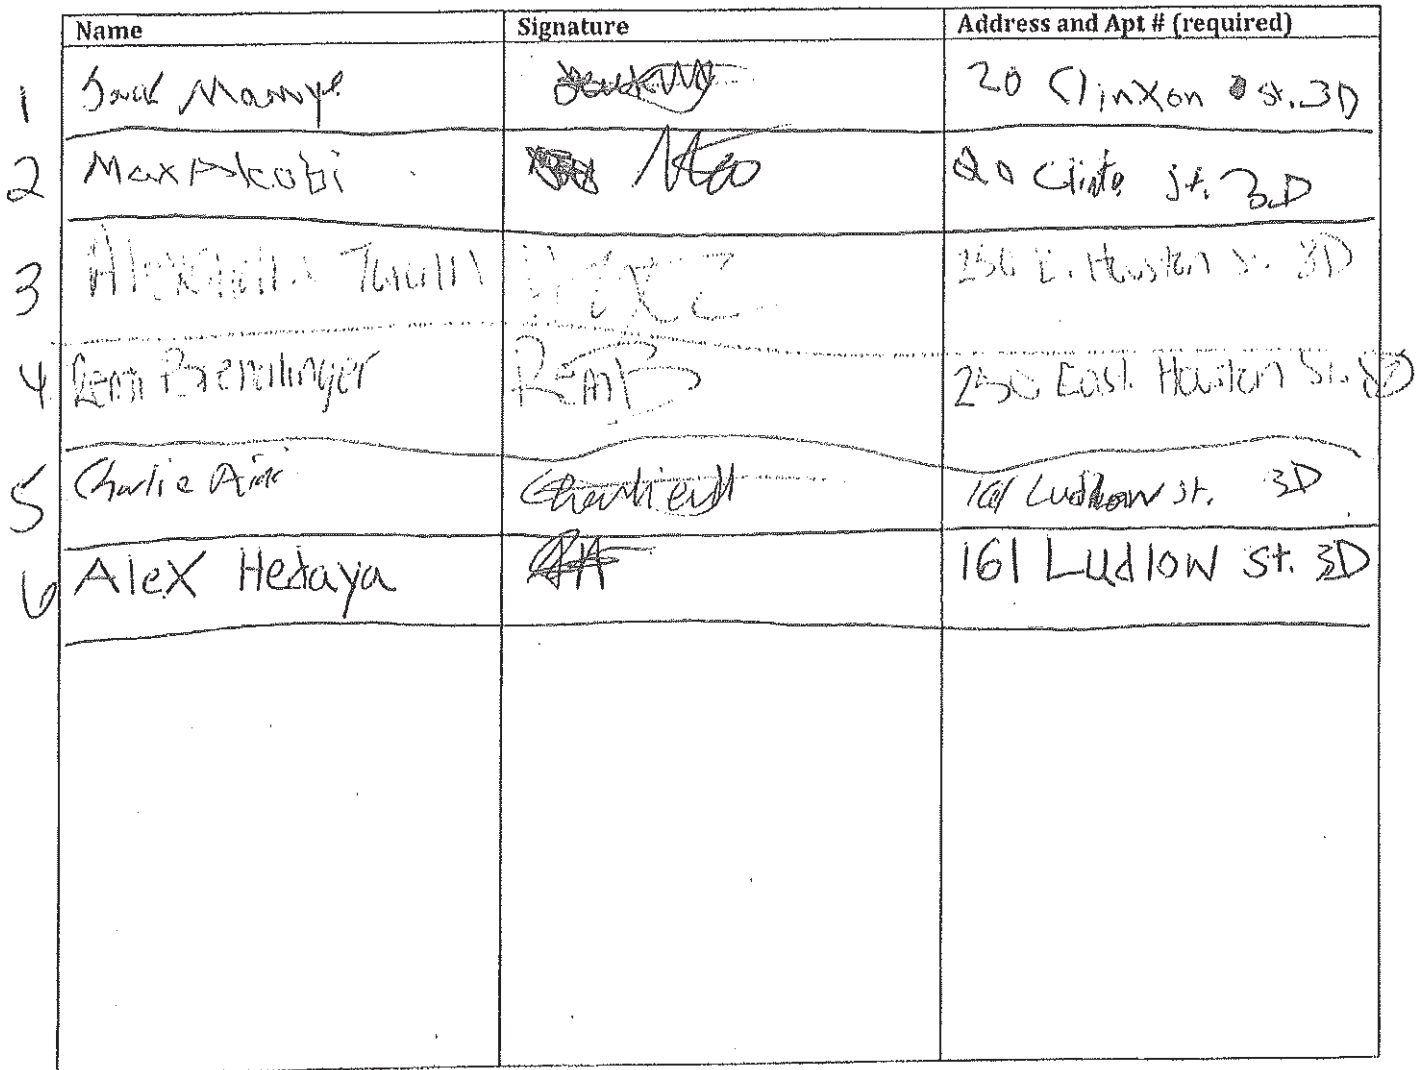 Name Signature Address and Apt # (required)
1 Jack Mamye 20 Clinton st. 3D
2 Max Alcobi 20 st. 3D
3 250 E. Houston St. 3D
4 Remi Brendlinger RemB 250 East Houston St. 3D
5 Charlie 161 Ludlow st. 3D
6 Alex Hedaya AH 161 Ludlow St. 3D